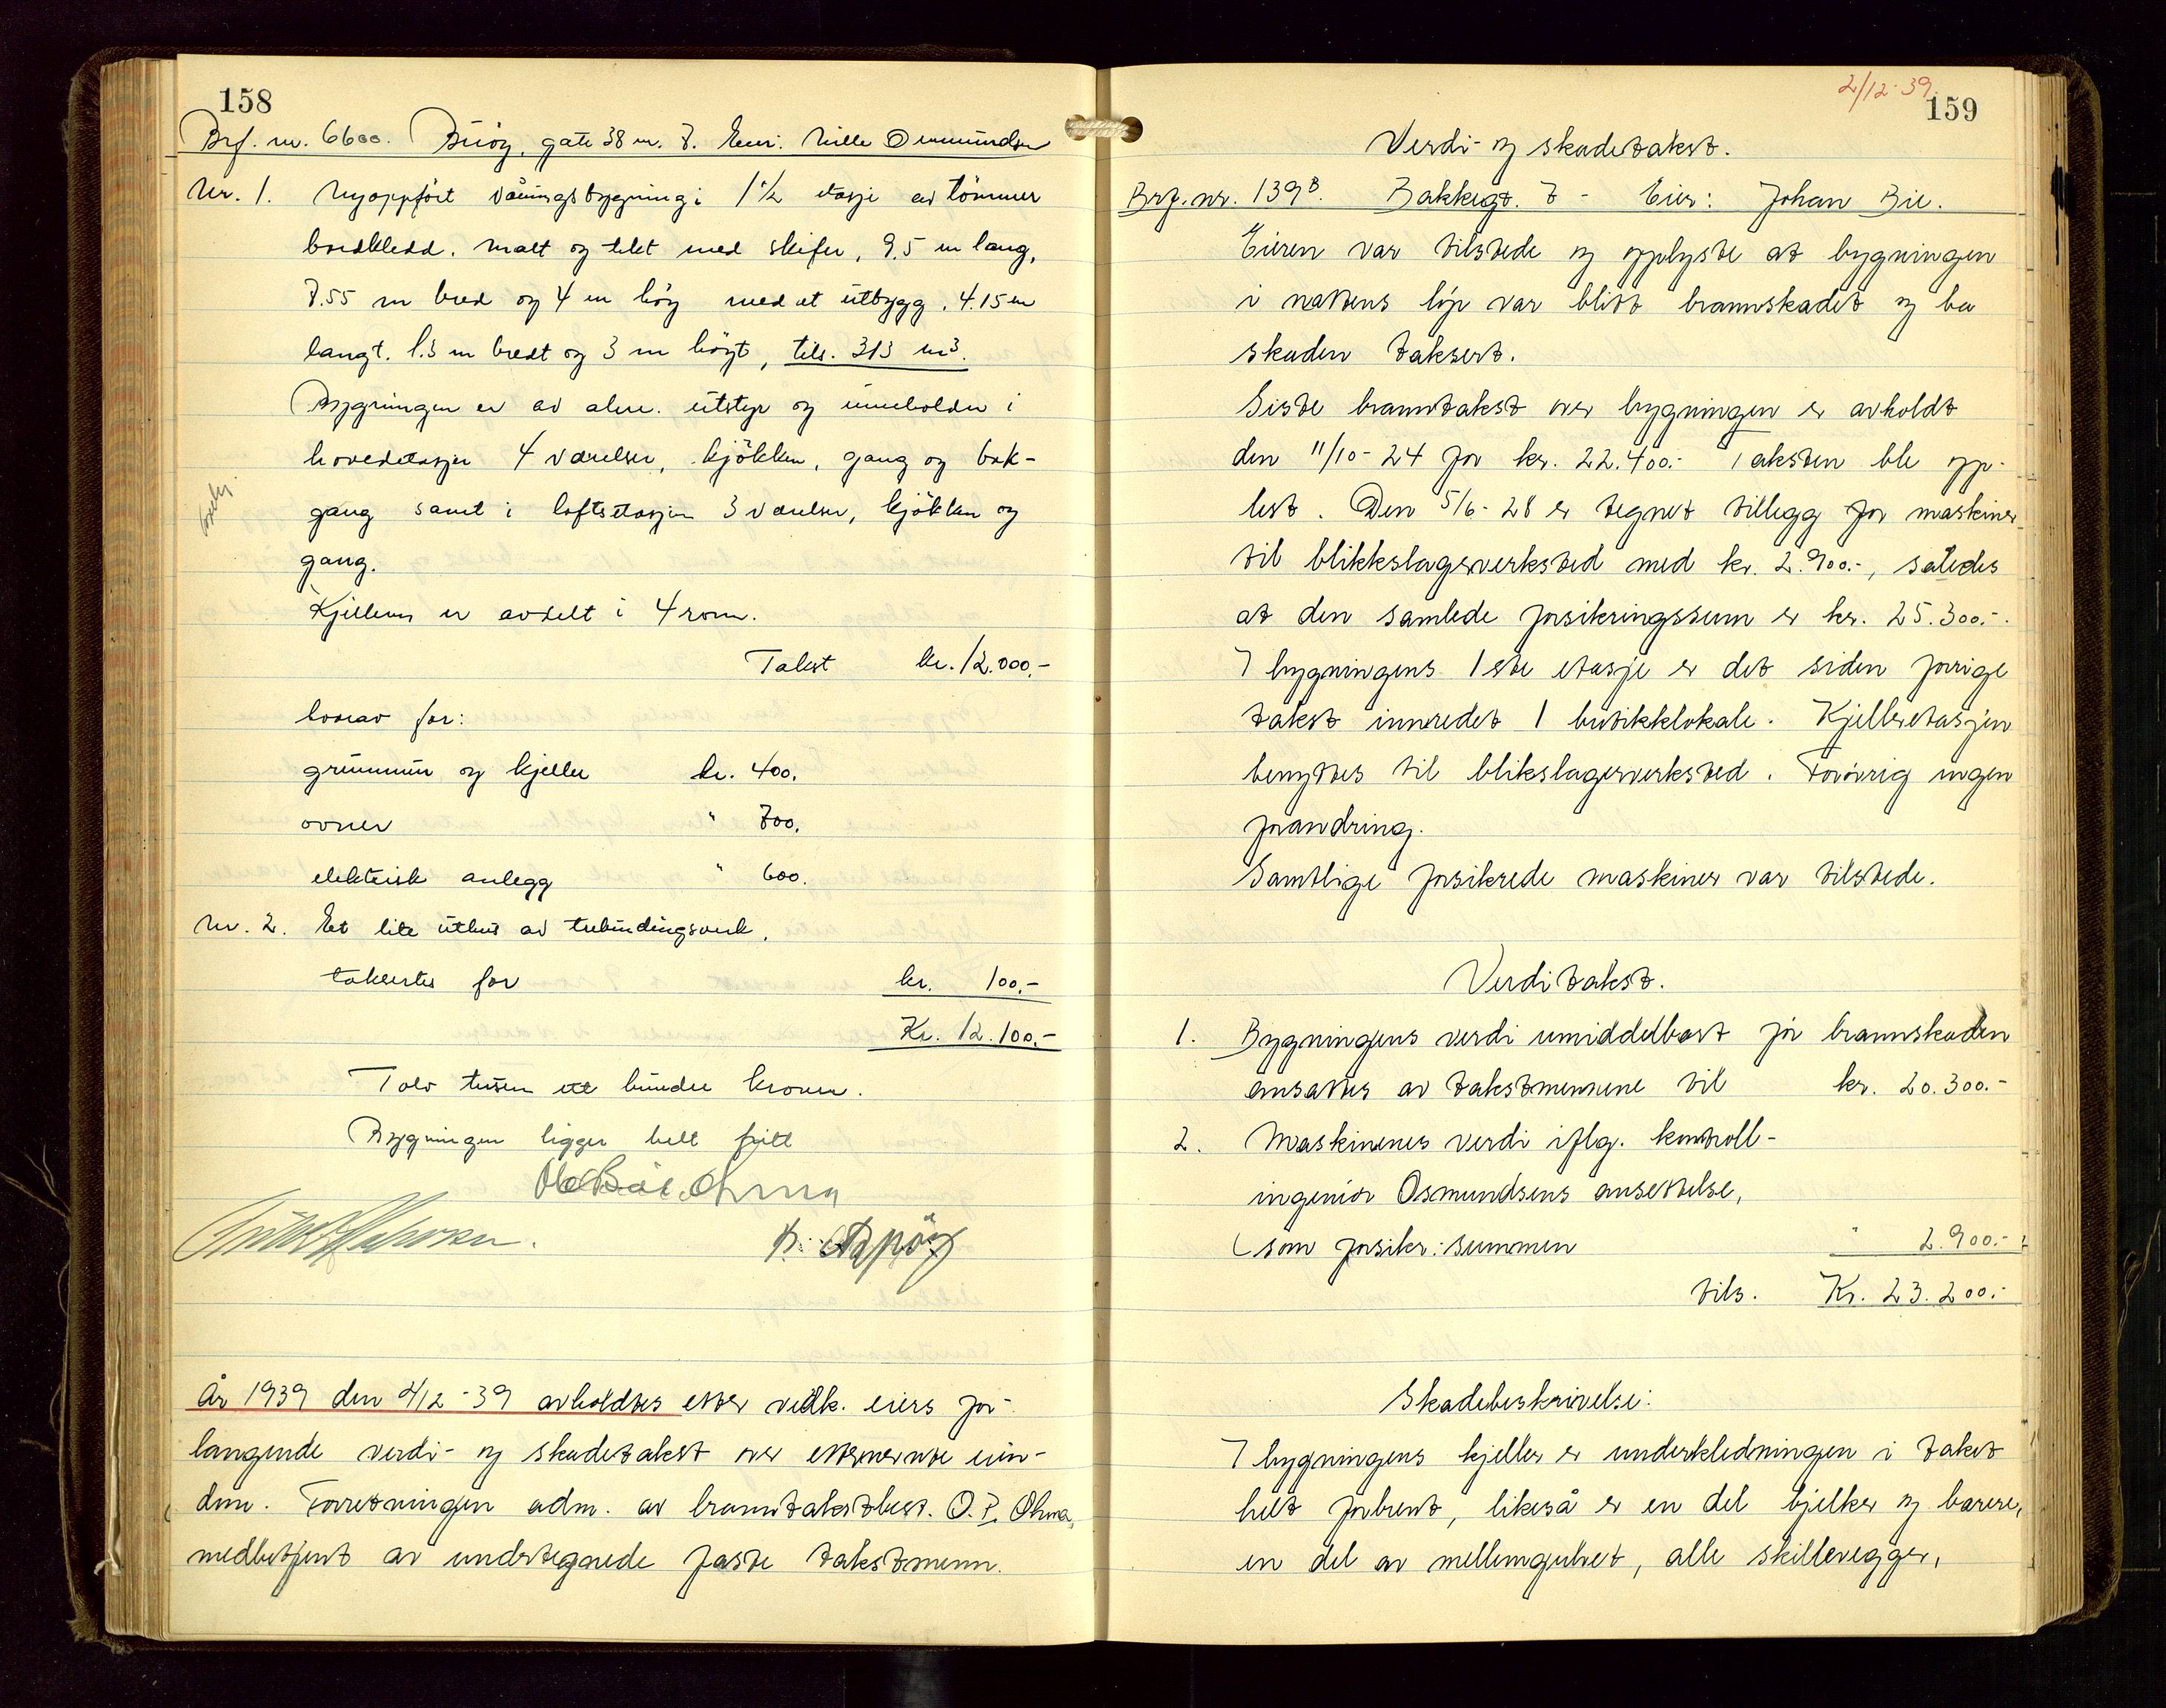 158
Brf. nr. 6600. Buöy, gate 38 nr. 7. Eier: Nille Osmundsen
Nr. 1. Nyoppført våningsbygning i 1 1/2 etasje av tömmer
bordkledd, malt og tekt med skifer, 9,5 m lang,
7.55 m bred og 4 m höy med et utbygg, 4.15 m
langt, 1.3 m bredt og 3 m höyt, tils. 313 m³.
Bygningen er av alm. utstyr og inneholder i
hovedetasjen 4 værelser, kjökken, gang og bak-
gang samt i loftsetasjen 3 værelser, kjökken og
gang.
Kjelleren er avdelt i 4 rom.
Takst kr. 12.000.-
hvorav for:
grunnmur og kjeller kr. 400.
ovner " 700.
elektrisk anlegg " 600.
Nr. 2. Et lite uthus av trebindingsverk,
takseres for kr. 100.-
Kr. 12.100.-
Tolv tusen ett hundre kroner.
Bygningen ligger helt fritt
År 1939 den 2/12-39 avholdtes etter vedk. eiers for-
langende verdi- og skadetakst over etternevnte eien-
dom. Forretningen adm. av branntakstbest. O. P. Ohma,
medbetjent av undertegnede faste takstmenn.
2/12-39.
159
Verdi- og skadetakst.
Brf. nr. 139B. Bakkegt. 7 - Eier: Johan Bie.
Eieren var tilstede og opplyste at bygningen
i nattens löp var blitt brannskadet og ba
skaden taksert.
Siste branntakst over bygningen er avholdt
den 11/10-24 for kr. 22.400.- Taksten ble opp-
lest. Den 5/6-28 er tegnet tillegg for maskiner
til blikkslagerverksted med kr. 2.900.-, således
at den samlede forsikringssum er kr. 25.300.-.
I bygningens 1ste etasje er det siden forrige
takst innredet 1 butikklokale. Kjelleretasjen
benyttes til blikslagerverksted. Forövrig ingen
forandring.
Samtlige forsikrede maskiner var tilstede.
Verditakst.
1. Bygningens verdi umiddelbart för brannskaden
ansattes av takstmennene til kr. 20.300.-
2. Maskinenes verdi iflg. kontroll-
ingeniör Osmundsens ansettelse,
(som forsikr: summen " 2.900.-
tils. Kr. 23.200.-
Skadebeskrivelse:
I bygningens kjeller er underkledningen i taket
helt forbrent, likeså er en del bjelker og barere,
en del av mellemgulvet, alle skillevegger,